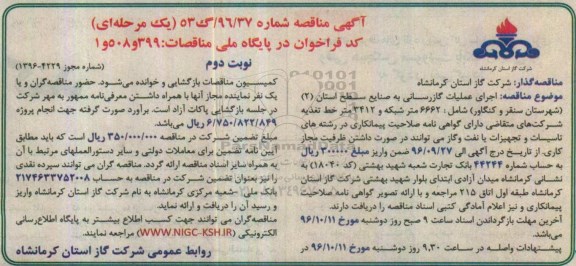 آگهی مناقصه شماره ۹۶/۳۷/گ۵۳ (یک مرحله‌ای)
کد فراخوان در پایگاه ملی مناقصات:۳۹۹و۵۰۸و۱
نوبت دوم
(شماره مجوز ۴۲۲۹-۱۳۹۶)
شرکت گاز استان کرمانشاه
مناقصه‌گذار: شرکت گاز استان کرمانشاه
موضوع مناقصه: اجرای عملیات گازرسانی به صنایع سطح استان (۲)
(شهرستان سنقر و کنگاور) شامل: ۶۶۶۲ متر شبکه و ۳۴۱۲ متر خط تغذیه
شرکت‌های متقاضی دارای گواهی نامه صلاحیت پیمانکاری در رسته های
تاسیسات و تجهیزات یا نفت وگاز می توانند در صورت داشتن ظرفیت مجاز
کاری، از تاریخ درج آگهی الی ۹۶/۰۹/۲۷ ضمن واریز مبلغ ۳۰۰/۰۰۰ ریال
به حساب شماره ۴۴۲۴۴ بانک تجارت شعبه شهید بهشتی (کد ۱۸۰۴۰) به
نشانی کرمانشاه میدان آزادی ابتدای بلوار شهید بهشتی شرکت گاز استان
کرمانشاه طبقه اول اتاق ۲۱۵ مراجعه و با ارائه تصویر گواهی نامه صلاحیت
پیمانکاری و نیز اعلام آمادگی کتبی اسناد مناقصه را دریافت دارند.
آخرین مهلت بازگرداندن اسناد ساعت ۹ صبح روز دوشنبه مورخ ۹۶/۱۰/۱۱
می‌باشد.
پیشنهادات واصله در ساعت ۹,۳۰ روز دوشنبه مورخ ۹۶/۱۰/۱۱ در
کمیسیون مناقصات بازگشایی و خوانده می‌شود. حضور مناقصه‌گران و یا
یک نفر نماینده مجاز آنها با همراه داشتن معرفی‌نامه ممهور به مهر شرکت
در جلسه بازگشایی پاکات آزاد است. برآورد صورت گرفته جهت انجام پروژه
۶/۷۵۰/۸۲۲/۸۴۹ ریال می‌باشد.
مبلغ تضمین شرکت در مناقصه ۳۵۰/۰۰۰/۰۰۰ ریال است که باید مطابق
آیین نامه تضمین برای معاملات دولتی و سایر دستورالعملهای مرتبط با آن
به همراه سایر اسناد مناقصه ارائه گردد. مناقصه گران می توانند سپرده نقدی
را نیز بعنوان تضمین شرکت در مناقصه به حساب ۲۱۷۴۶۳۳۷۵۲۰۰۸
بانک ملی -شعبه مرکزی کرمانشاه به نام شرکت گاز استان کرمانشاه واریز
و رسید آن را دریافت و ارائه نمایند.
مناقصه‌گران می توانند جهت کسب اطلاع بیشتر به پایگاه اطلاع‌رسانی
الکترونیکی (WWW.NIGC-KSH.IR) مراجعه نمایند.
روابط عمومی شرکت گاز استان کرمانشاه